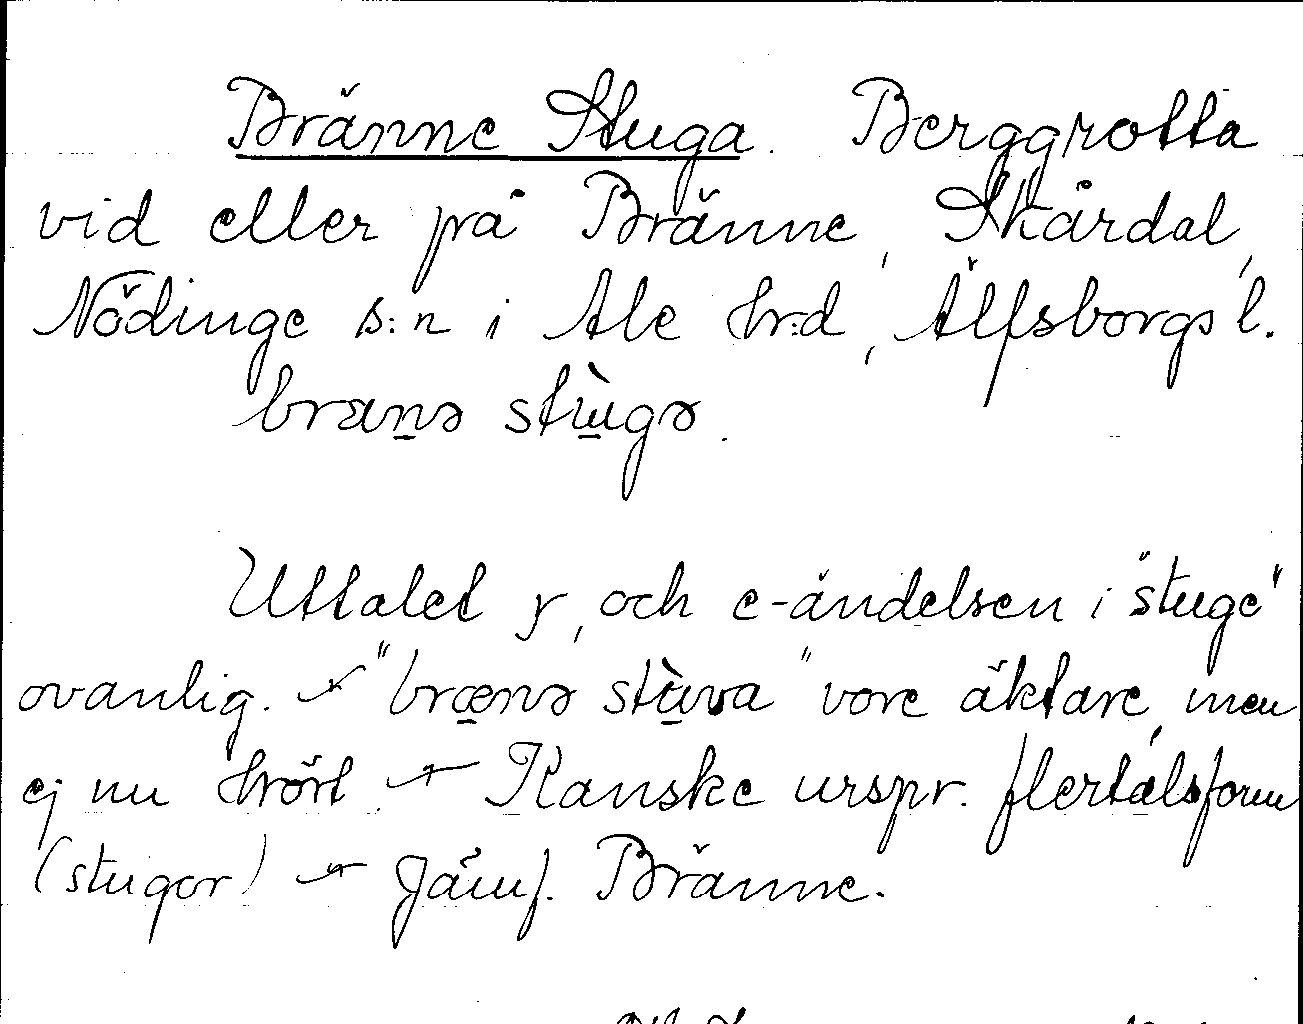 Bränne Stuga. Berggrotta
vid eller på Bränne, Skårdal,
Nödinge s:n i Ale hr:d, Älfsborgs l.
brænə stùgə.
Uttalet g, och e-ändelsen i "stuge"
ovanlig. — "brænə stùva" vore äktare, men
ej nu hört. — Kanske urspr. flertalsform
(stugor) — Jämf. Bränne.